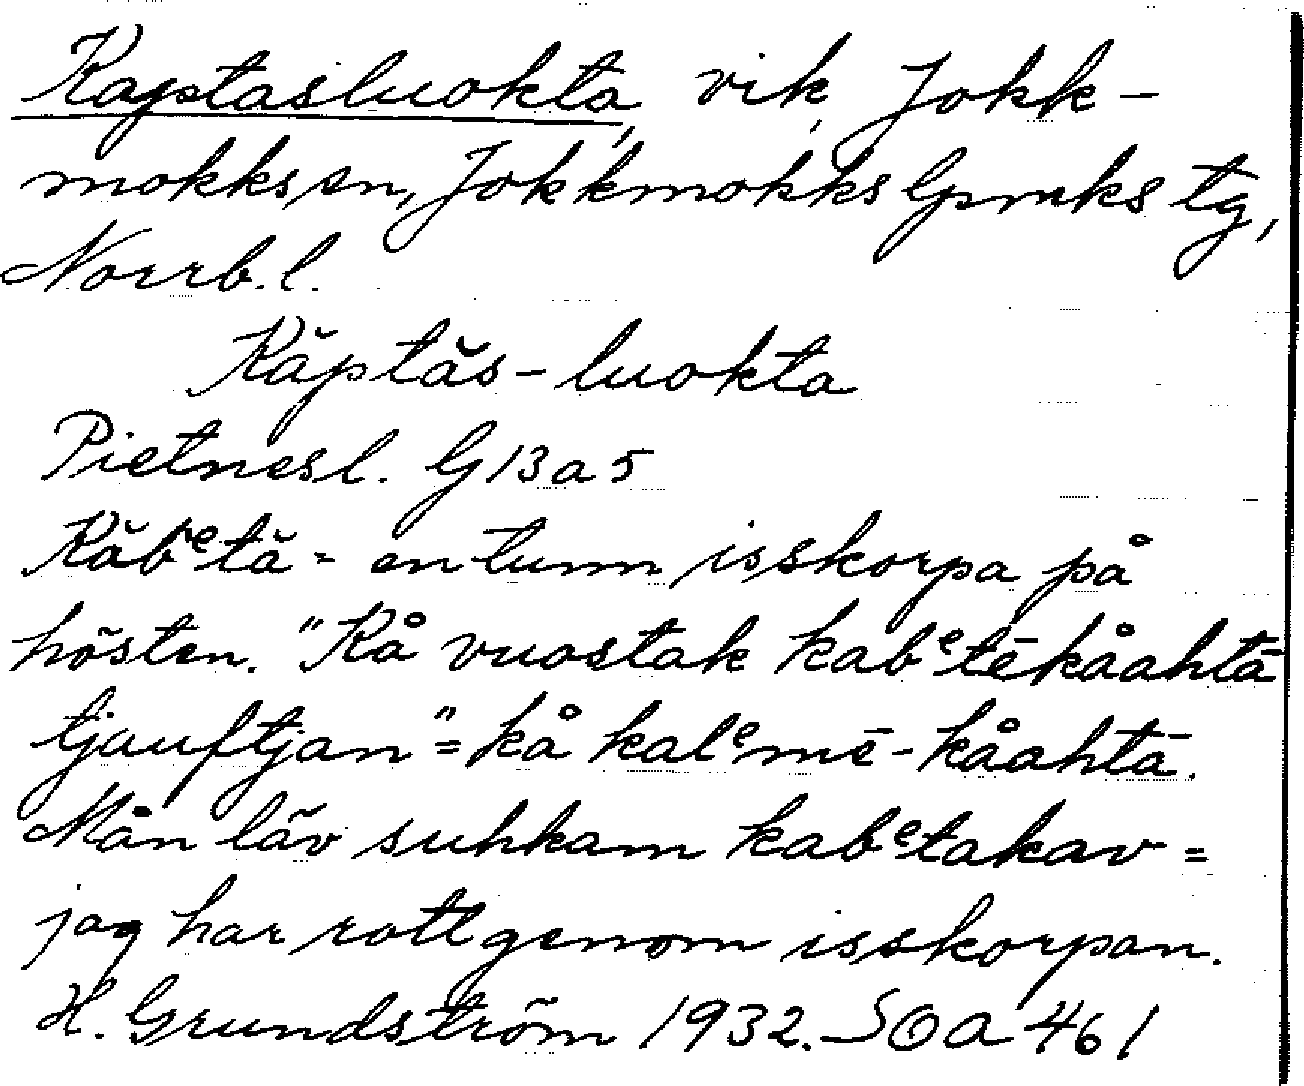 Kaptasluokta, vik, Jokk-
mokks sn, Jokkmokks lpmks tg,
Norrb. l.
Kăptăs-luokta
Pietnesl. G13a5
Kăbᵉtă = en tunn isskorpa på
hösten. "Kå vuostak kabᵉtēkåahtā
tjauftjan" = kå kalᵉmē-kåahtā.
Mån läv suhkam kabᵉtakav =
jag har rott genom isskorpan.
H. Grundström 1932. SOA 461